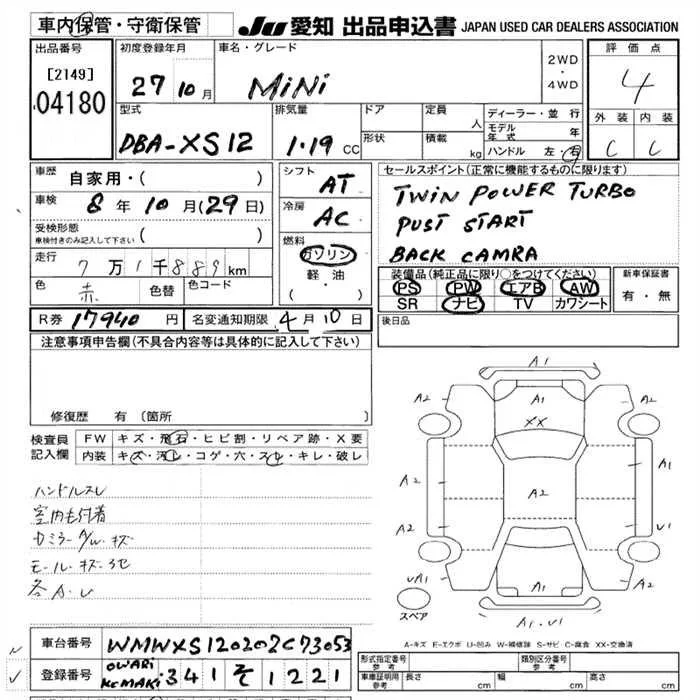 車内保管・守衛保管 JU 愛知 出品申込書 JAPAN USED CAR DEALERS ASSOCIATION
出品番号 初度登録年月 車名・グレード 2WD・4WD 評価点
[2149] 04180 27 10月 MINI 4
型式 排気量 ドア 定員 人 ディーラー・並行 外装 内装
DBA-XS12 1.19 CC 形状 積載 kg モデル年式 年 C C
ハンドル 左・右
車歴 自家用・( ) シフト AT セールスポイント(正常に機能するものに限ります)
車検 8年10月(29日) 冷房 AC TWIN POWER TURBO
受検形態 車検付きのみ記入して下さい ( ) PUST START
燃料 ガソリン 軽油 ( ・ ) BACK CAMRA
走行 7万1千889km
装備品(純正品に限り○をつけてください) 新車保証書
色 赤 色替 色コード PS PW エアB AW 有・無
SR ナビ TV カワシート
R券 17940円 名変通知期限 4月10日 後日品
注意事項申告欄(不具合内容等は具体的に記入して下さい)
修復歴 有(箇所
検査員記入欄 FW キズ・飛石・ヒビ割・リペア跡・X要
内装 キズ・汚レ・コゲ・穴・スレ・キレ・破レ
ハンドルスレ
モール・キズ
各A・U
A1
A2 A1 A1 A2
XX
A1 A2
A2
A2 U1
UA1 A1 A1
スペア A1・U1
A-キズ E-エクボ U-凹み W-補修跡 S-サビ C-腐食 XX-交換済
車台番号 WMWXS120202C73053
登録番号 OWARI KOMAKI 341 そ 1221
型式指定番号 参考 類別区分番号 参考
車庫証明用 参考 長さ cm 幅 cm 高さ cm